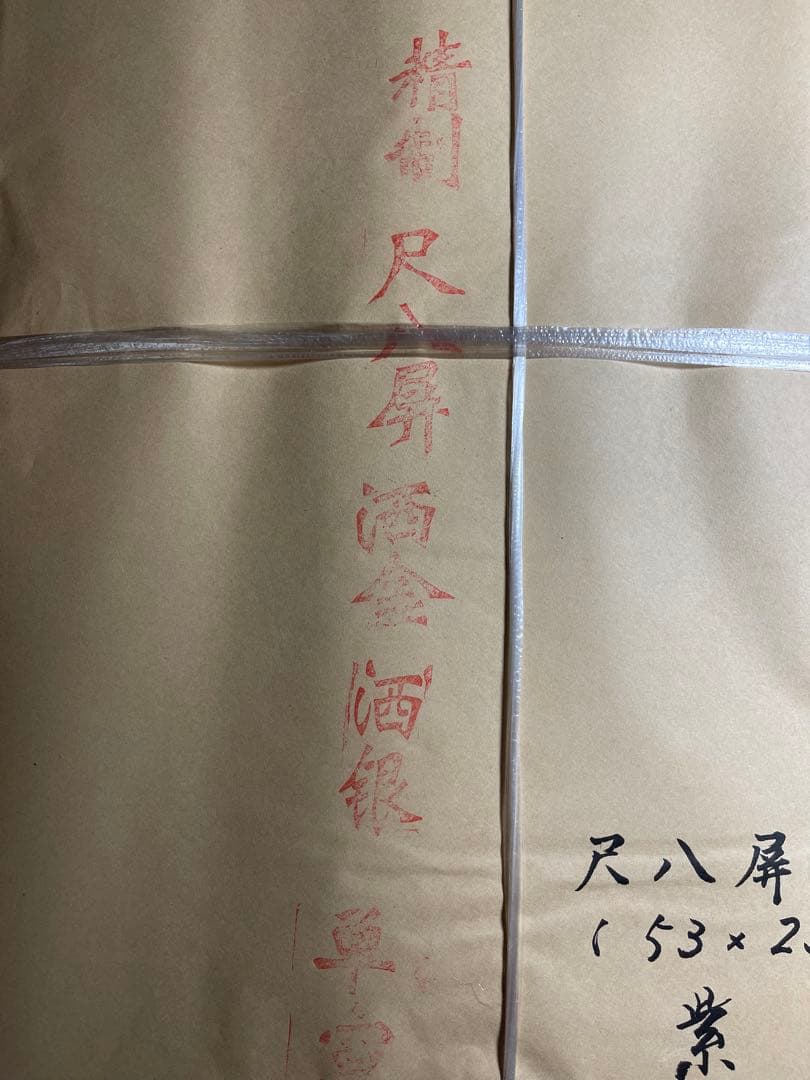 精制 尺八屏 洒金 洒银 单宣
尺八屏
(53×2
紫